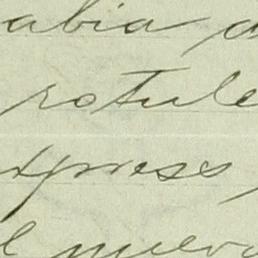 abia d
rotule
xpress,
l nuevo